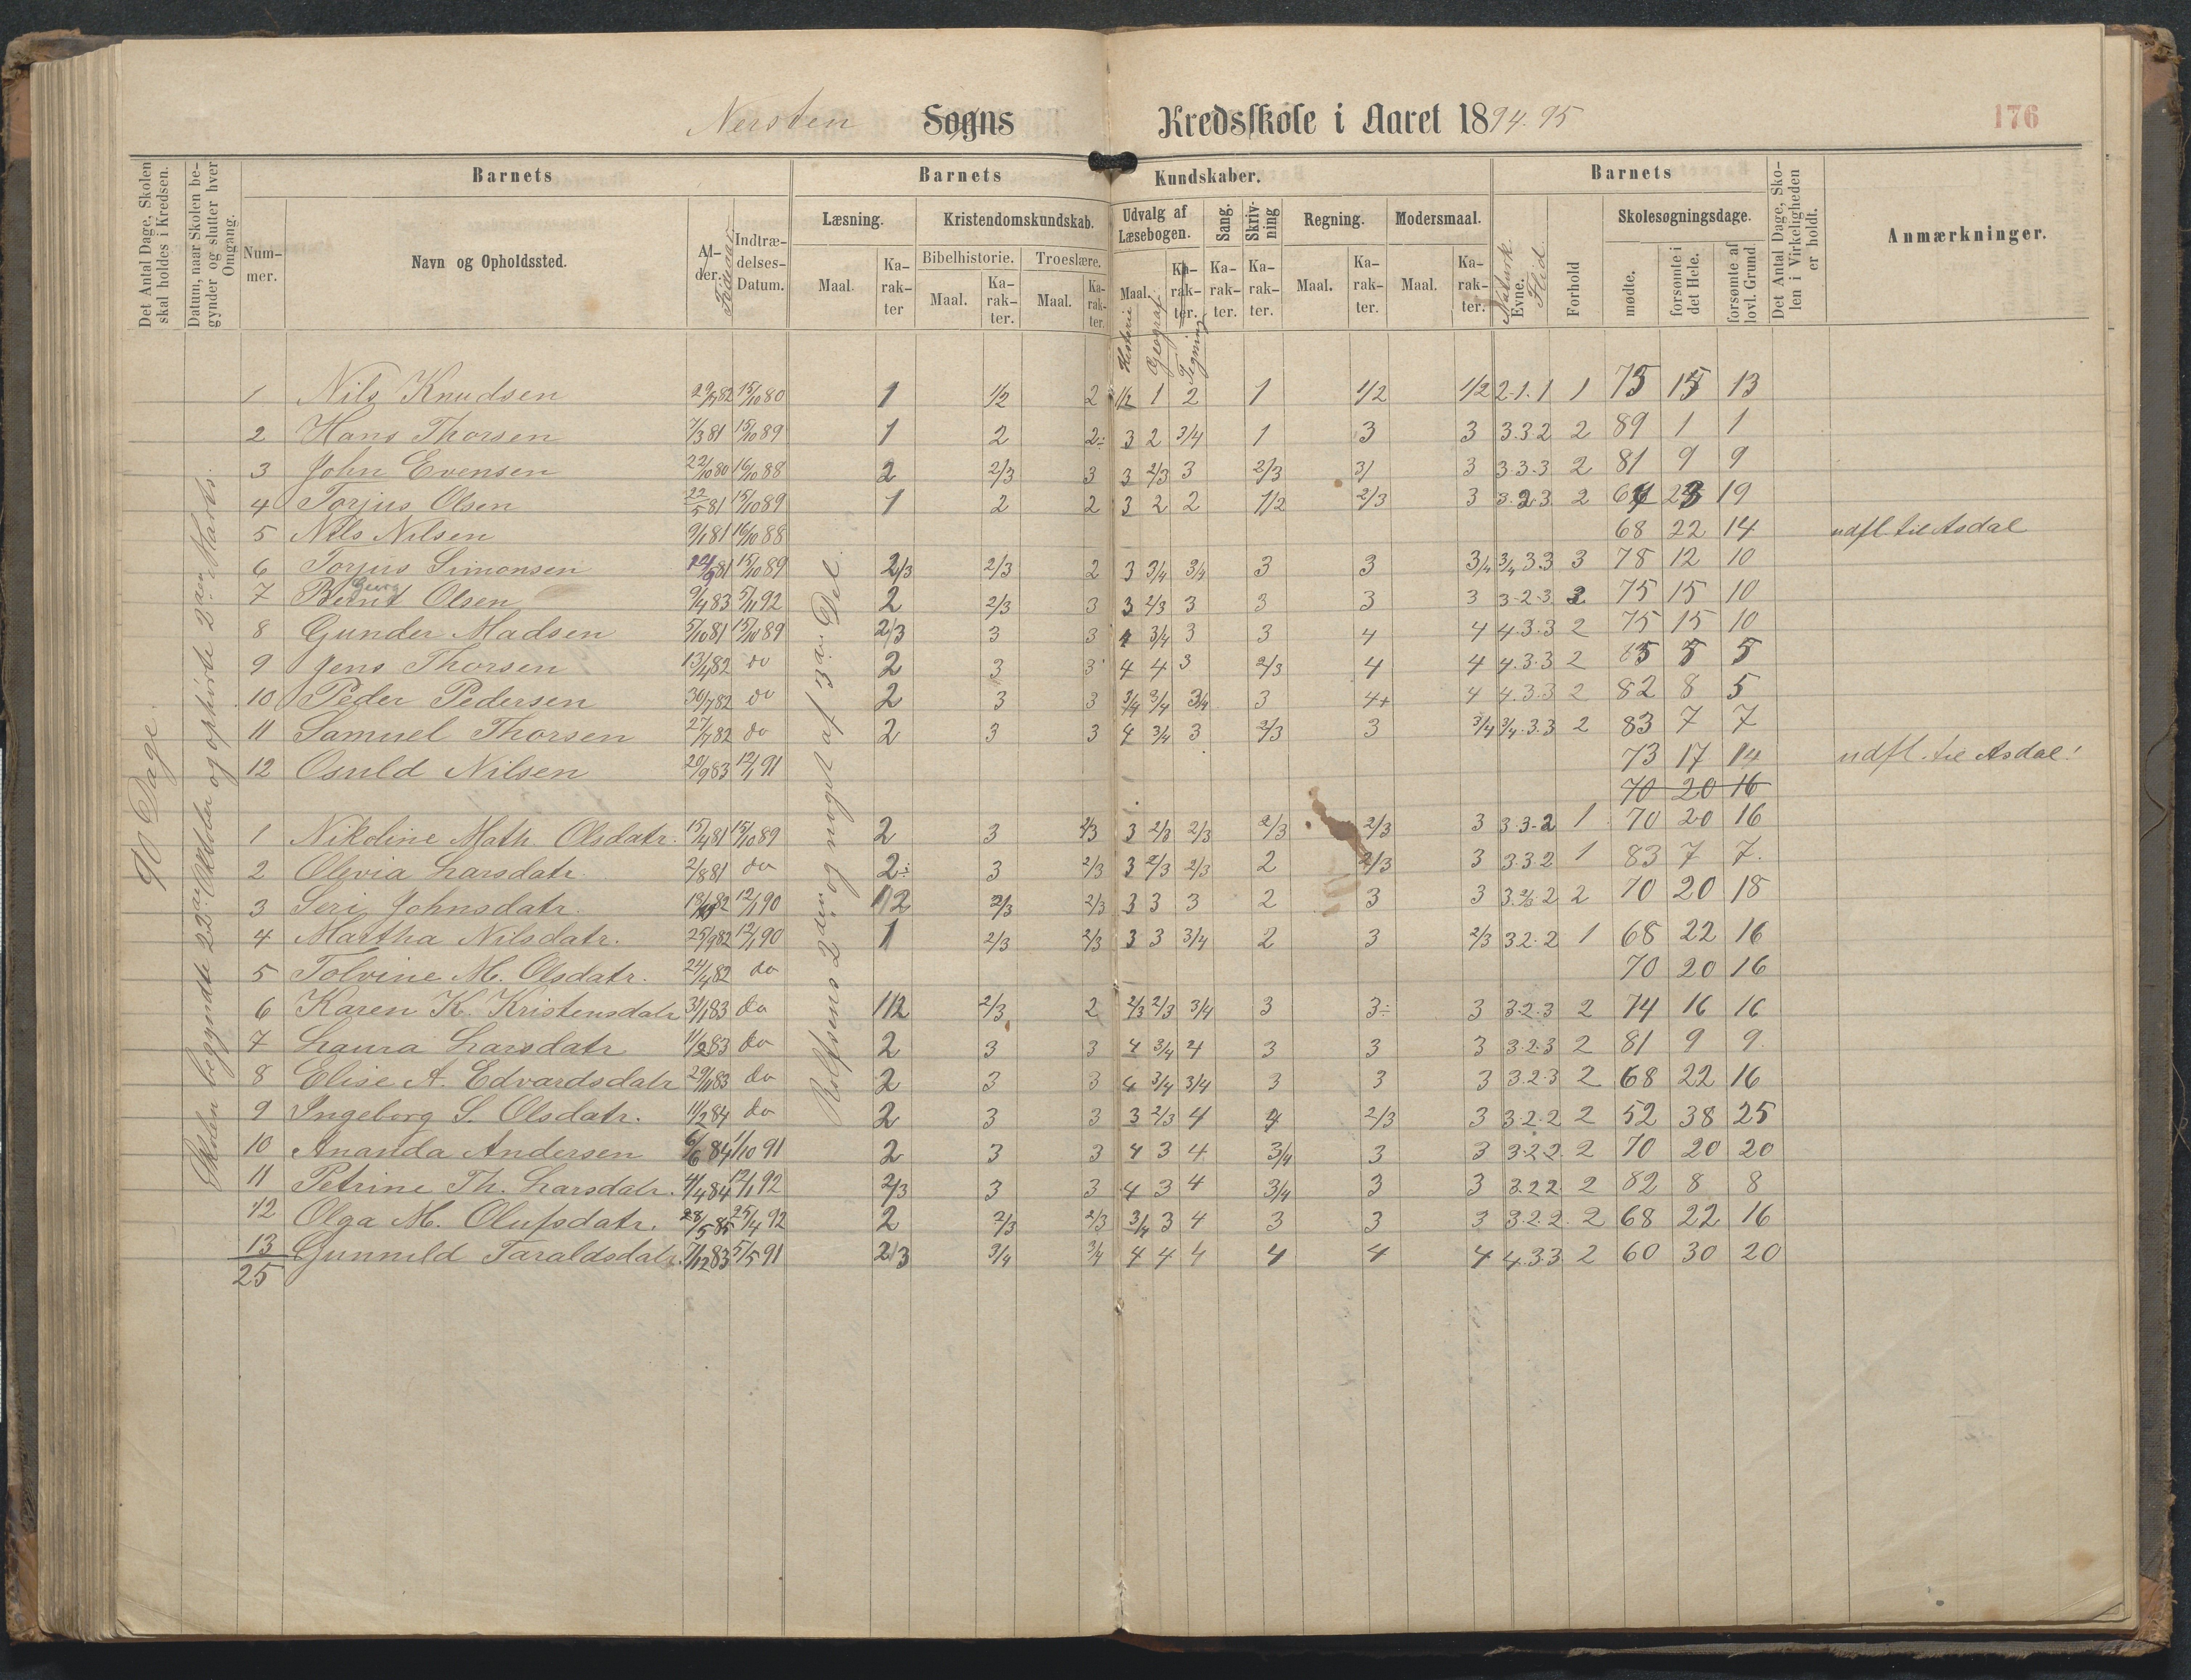 Nersten Sogns Kredsskole i Aaret 1894.95
176
Det Antal Dage, Skolen skal holdes i Kredsen.
Datum, naar Skolen begynder og slutter hver Omgang.
Barnets
Nummer.
Navn og Opholdssted.
Alder.
Fødselsaar
Indtrædelses-Datum.
Barnets Kundskaber.
Læsning.
Maal.
Karakter
Kristendomskundskab.
Bibelhistorie.
Maal.
Karakter.
Troeslære.
Maal.
Karakter.
Udvalg af Læsebogen.
Maal.
Karakter.
Historie
Geografi
Tegning
Sang.
Karakter.
Skrivning
Karakter.
Regning.
Maal.
Karakter.
Modersmaal.
Maal.
Karakter.
Barnets
Naturk.
Evne.
Flid.
Forhold
Skolesøgningsdage.
mødte.
forsømte i det Hele.
forsømte af lovl. Grund.
Det Antal Dage, Skolen i Virkeligheden er holdt.
Anmærkninger.
90 Dage.
Skolen begyndte 22de Oktober og ophørte 2den Marts.
Rolfsens 2den og noget af 3die Del.
1 Nils Knudsen 29/7 82 15/10 80 1 1/2 2 1/2 1 2 1 1/2 1/2 2.1.1 1 75 15 13
2 Hans Thorsen 7/3 81 15/10 89 1 2 2÷ 3 2 3/4 1 3 3 3.3.2 2 89 1 1
3 John Evensen 22/10 80 16/10 88 2 2/3 3 3 2/3 3 2/3 3/ 3 3.3.3 2 81 9 9
4 Torjus Olsen 22/5 81 15/10 89 1 2 2 3 2 2 1/2 2/3 3 3.2.3 2 67 23 19
5 Nils Nilsen 9/1 81 16/10 88 68 22 14 udfl. til Asdal
6 Torjus Simonsen 15/10 89 2/3 2/3 2 3 3/4 3/4 3 3 3/4 3/4 3.3 3 78 12 10
7 Bernt Georg Olsen 9/4 83 5/11 92 2 2/3 3 3 2/3 3 3 3 3 3.2.3 2 75 15 10
8 Gunder Madsen 5/10 81 15/10 89 2/3 3 3 4 3/4 3 3 4 4 4.3.3 2 75 15 10
9 Jens Thorsen 13/4 82 do 2 3 3 4 4 3 2/3 4 4 4.3.3 2 65 5 5
10 Peder Pedersen 30/7 82 do 2 3 3 3/4 3/4 3/4 3 4+ 4 4.3.3 2 82 8 5
11 Samuel Thorsen 27/7 82 do 2 3 3 4 3/4 3 2/3 3 3/4 3/4.3.3 2 83 7 7
12 Osuld Nilsen 20/9 83 12/1 91 73 17 14 udfl. til Asdal!
70 20 16
1 Nikoline Math. Olsdatr. 15/4 81 15/10 89 2 3 2/3 3 2/3 2/3 2/3 2/3 3 3.3.2 1 70 20 16
2 Olevia Larsdatr. 2/8 81 do 2÷ 3 2/3 3 2/3 2/3 2 2/3 3 3.3.2 1 83 7 7.
3 Seri Johnsdatr. 12/1 90 1/2 2/3 2/3 3 3 3 2 3 3 3.2/3 2 2 70 20 18
4 Martha Nilsdatr. 25/9 82 12/1 90 1 2/3 2/3 3 3 3/4 2 3 2/3 3.2.2 1 68 22 16
5 Tolvine M. Olsdatr. 24/4 82 do 70 20 16
6 Karen K. Kristensdatr 31/1 83 do 1/2 2/3 2 2/3 2/3 3/4 3 3÷ 3 3.2.3 2 74 16 16
7 Laura Larsdatr 11/2 83 do 2 3 3 4 3/4 4 3 3 3 3.2.3 2 81 9 9.
8 Elise A. Edvardsdatr 29/11 83 do 2 3 3 4 3/4 3/4 3 3 3 3.2.3 2 68 22 16
9 Ingeborg S. Olsdatr. 11/2 84 do 2 3 3 3 2/3 4 4 2/3 3 3.2.2 2 52 38 25
10 Ananda Andersen 6/6 84 1/10 91 2 3 3 4 3 4 3/4 3 3 3.2.2. 2 70 20 20
11 Petrine Th. Larsdatr. 4/4 84 12/1 92 2/3 3 3 4 3 4 3/4 3 3 3.2.2. 2 82 8 8
12 Olga M. Olufsdatr. 28/5 85 25/4 92 2 2/3 2/3 3/4 3 4 3 3 3 3.2.2. 2 68 22 16
13 Gunnild Taraldsdatr. 7/12 83 5/5 91 2/3 3/4 3/4 4 4 4 4 4 4 4.3.3 2 60 30 20
25